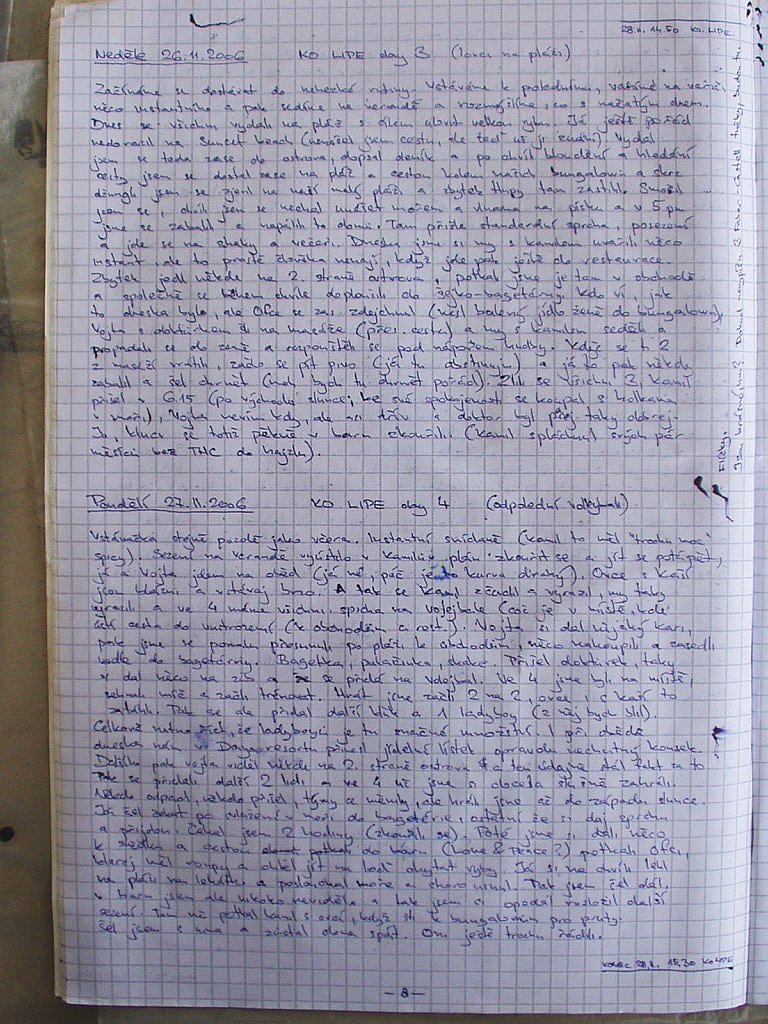 28.11. 14.50 KO LIPE
Neděle 26.11.2006 KO LIPE day 3 (lovci na pláži)
Začínáme se dostávat do nehezké rutiny. Vstáváme k polednímu, vaříme na
něco instantního a pak sedíme na verandě a rozmýšlíme, co s načatým dnem.
Dnes se všichni vydali na pláž s cílem ulovit velkou rybu. Já ještě pořád
nedorazil na Sunset beach (nenašel jsem cestu, ale teď už ji znám). Vydal
jsem se teda zase do ostrova, dopsal deník a po chvíli bloudění a hledání
cesty jsem se dostal zase na pláž a cestou kolem našich bungalowů a skrz
džungli jsem se zjevil na naší malý pláži a zbytek tlupy tam zastihl.
jsem se, chvíli jsem se nechal unášet mořem a v 5 pm
jsme se zabalili a napálili to domů. Tam přišla standardní sprcha, posezení
a jde se na shaky a večeři. Dneska jsme si my s Kamilem uvařili něco
instant. ale to prostě člověka nenají, když jde pak ještě do restaurace.
Zbytek jedl někde na 2. straně ostrova, potkali jsme je tam v obchodě
a společně se během chvíle doplazili do šejko-bagetárny. Kdo ví, jak
to dneska bylo, ale Ofce se zas zdejchnul (nesl balený jídlo ženě do bungalowu),
Vojta s doktůrkem šli na masáže (přes cestu) a my s Kamilem seděli a
propadali se do země a rozpouštěli se pod náporem hudby. Když se ti 2
z masáží vrátili, začlo se pít pivo (já tu abstinuju) a já to pak někdy
zabalil a šel chrnět (nech bych tu chrnět pořád). Zlili se všichni 3, Kamil
přišel v 6.15 (po východu slunce, ke své spokojenosti se koupal s holkama
v moři), Vojta nevím kdy, ale asi dřív a doktor byl prej taky dobrej.
Jo, kluci se totiž pěkně v baru zkouřili. (Kamil spláchnul svých pár
měsíců bez THC do hajzlu).
Pondělí 27.11.2006 KO LIPE day 4 (odpolední volleyball)
Vstávačka stejně pozdě jako včera. Instantní snídaně (Kamil to měl "trochu moc"
spicy). Sezení na verandě vyústilo v Kamilův plán zkouřit se a jít se potápět,
já a Vojta jdem na oběd (já ne, páč je to kurva drahý). Ovce s Káťí
jsou líní a vstávaj brzo. A tak se Kamil zhulil a vyrazil, my taky
vyrazili a ve 4 máme všichni spicha na volejbale (což je v místě, kde
ústí cesta do vnitrozemí (k obchodům a rest.). Vojta si dal nějaký kari,
pak jsme se pomalu přesunuli po pláži k obchodům, něco nakoupili a zasedli
vedle do bagetárny. Bagetka, palačinka, shake. Přišel doktůrek, taky
si dal něco na zub a že se přidá na volejbal. Ve 4 jsme byli na místě,
sehnali míč a začli trénovat. Hrát jsme začli 2 na 2, ovce i s Káťí to
zatáhli. Pak se ale přidal další kluk a 1 ladyboy (z něj bych blil).
Celkově nutno říct, že ladyboyů je tu značné množství. 1 při obědě
dneska nám v Daya resortu přinesl jídelní lístek opravdu nechutný kousek.
Dalšího pak Vojta viděl někde na 2. straně ostrova a ten údajně stál fakt za to
Pak se přidali další 2 lidi a ve 4 už jsme si docela slušně zahráli.
Někdo odpadl, někdo přišel, týmy se měnily, ale hráli jsme až do západu slunce.
Já šel zdrhat po vyležení v moři do bagetérie, ostatní že si daj sprchu
a přijdou. Čekal jsem 2 hodiny (zkouřili se). Poté jsme si dali něco
k snědku a cestou do baru (Love & Peace?) potkali Ofci,
kterej měl roupy a chtěl jít na loď chytat ryby. Já si na chvíli lehl
na pláži na lehátko a poslouchal moře a skoro usnul. Pak jsem šel dál,
v baru jsem ale nikoho neviděl a tak jsem si opodál rozložil další
sezení. Tam mě potkal Kamil s ovcí, když šli k bungalowům pro pruty.
Šel jsem s nima a zůstal doma spát. Oni ještě trochu řádili.
KONEC 28.11. 15.30 KO LIPE
— 8 —